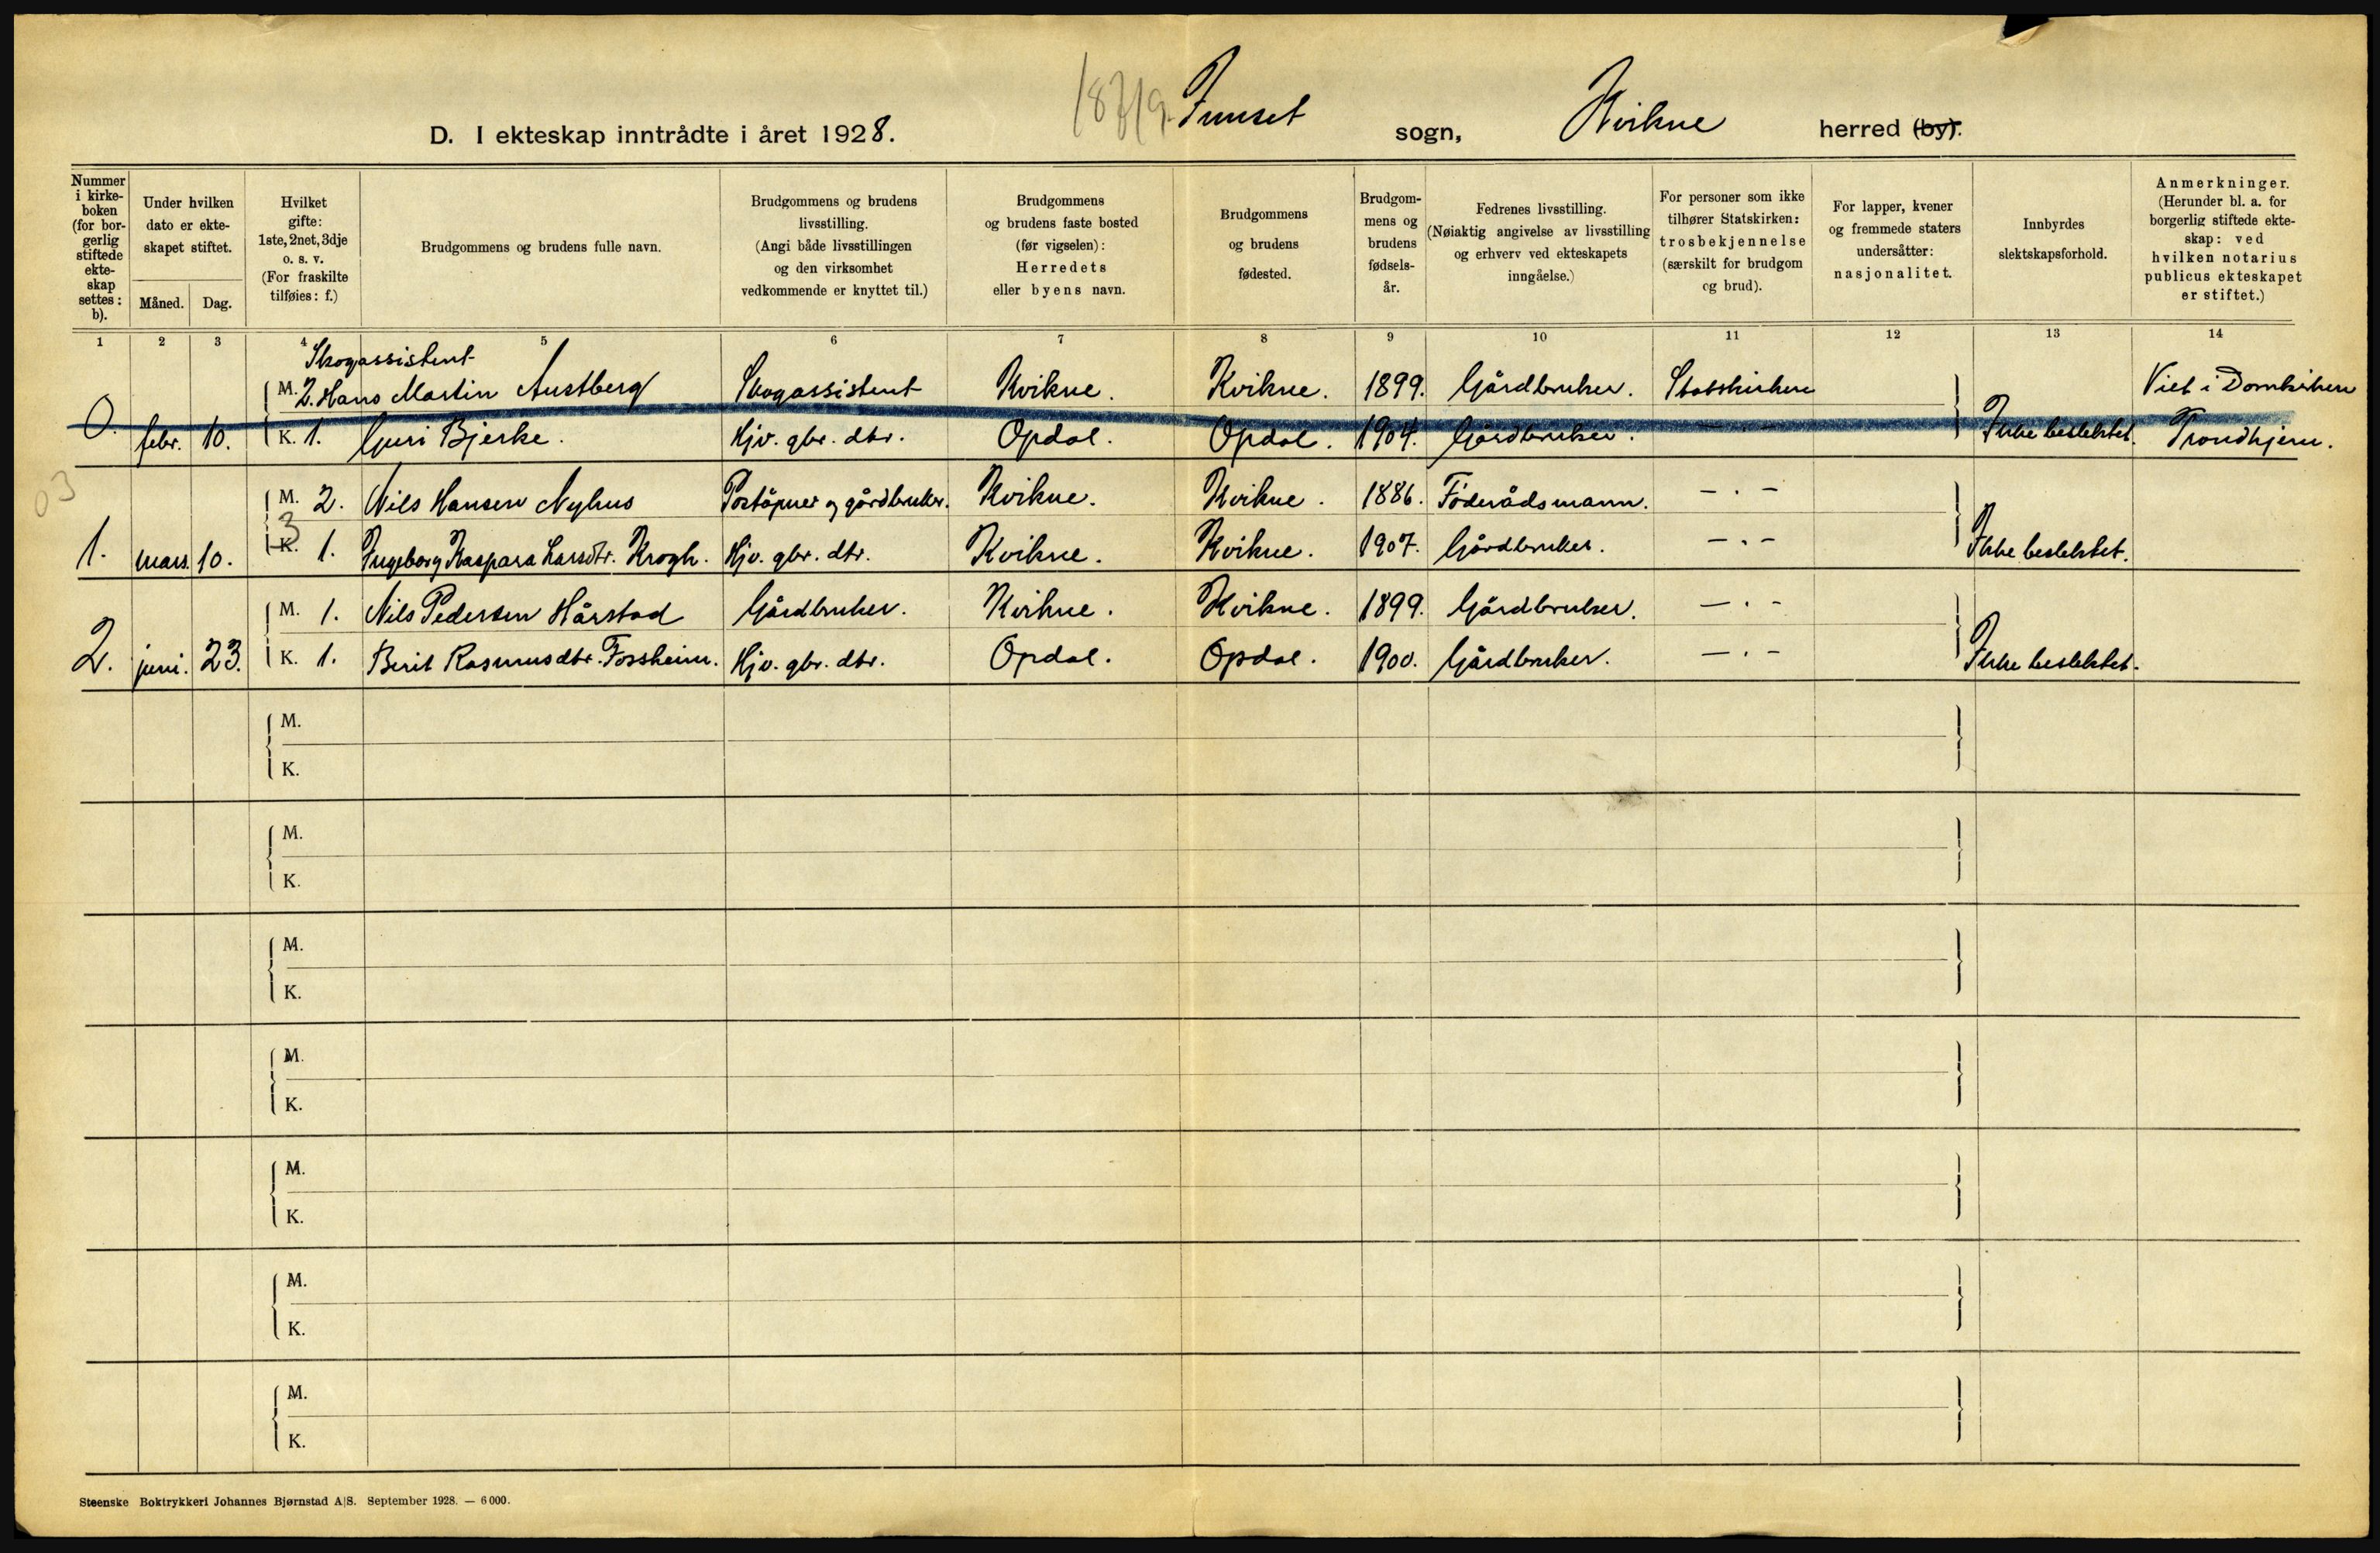 D. I ekteskap inntrådte i året 1928. Innset sogn, Kvikne herred (by).
Nummer i kirkeboken (for borgerlig stiftede ekteskap settes: b).
Under hvilken dato er ekteskapet stiftet.
Måned. Dag.
Hvilket gifte: 1ste, 2net, 3dje o. s. v. (For fraskilte tilføies: f.)
Brudgommens og brudens fulle navn.
Brudgommens og brudens livsstilling. (Angi både livsstillingen og den virksomhet vedkommende er knyttet til.)
Brudgommens og brudens faste bosted (før vigselen): Herredets eller byens navn.
Brudgommens og brudens fødested.
Brudgommens og brudens fødselsår.
Fedrenes livsstilling. (Nøiaktig angivelse av livsstilling og erhverv ved ekteskapets inngåelse.)
For personer som ikke tilhører Statskirken: trosbekjennelse (særskilt for brudgom og brud).
For lapper, kvener og fremmede staters undersåtter: nasjonalitet.
Innbyrdes slektskapsforhold.
Anmerkninger. (Herunder bl. a. for borgerlig stiftede ekteskap: ved hvilken notarius publicus ekteskapet er stiftet.)
1 2 3 4 5 6 7 8 9 10 11 12 13 14
Skogassistent
M. 2. Hans Martin Austberg Skogassistent Kvikne. Kvikne. 1899. Gårdbruker. Statskirken Viet i Domkirken
0. febr. 10. K. 1. Guri Bjerke. Hjv. gbr. dtr. Opdal. Opdal. 1904. Gårdbruker. - . - Ikke beslektet. Trondhjem.
03
M. 2. Nils Hansen Nyhus Poståpner og gårdbruker. Kvikne. Kvikne. 1886. Föderådsmann. - . -
3
1. mars. 10. K. 1. Ingeborg Kaspara Larsdtr. Krogh. Hjv. gbr. dtr. Kvikne. Kvikne. 1907. Gårdbruker. - . - Ikke beslektet.
M. 1. Nils Pedersen Hårstad Gårdbruker. Kvikne. Kvikne. 1899. Gårdbruker. - . -
2. juni. 23. K. 1. Berit Rasmusdtr. Forsheim. Hjv. gbr. dtr. Opdal. Opdal. 1900. Gårdbruker. - . - Ikke beslektet.
M.
K.
M.
K.
M.
K.
M.
K.
M.
K.
M.
K.
M.
K.
Steenske Boktrykkeri Johannes Bjørnstad A|S. September 1928. — 6 000.